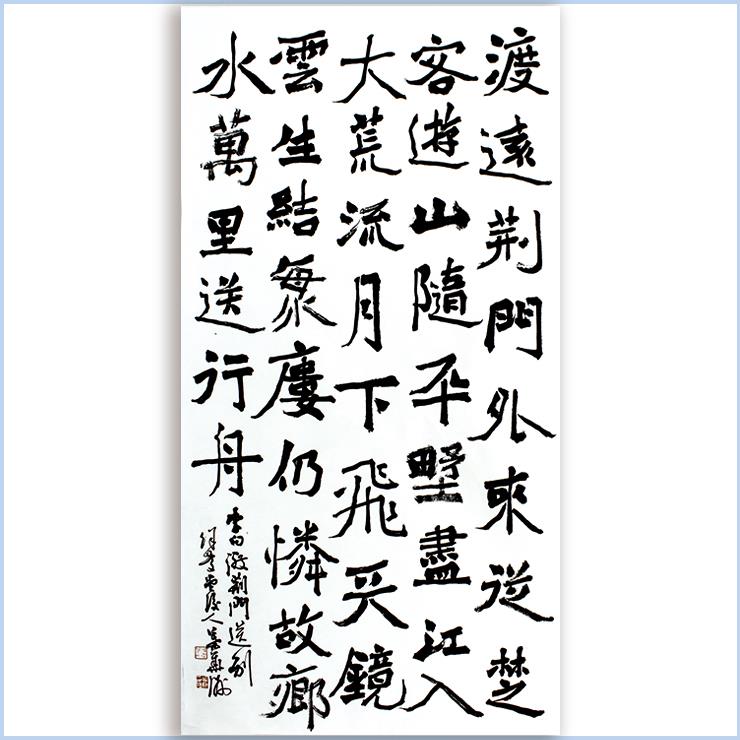 渡遠荊門外來從楚
客遊山隨平野盡江入
大荒流月下飛天鏡
雲生結海廔仍憐故鄉
水萬里送行舟
李白渡荊門送別